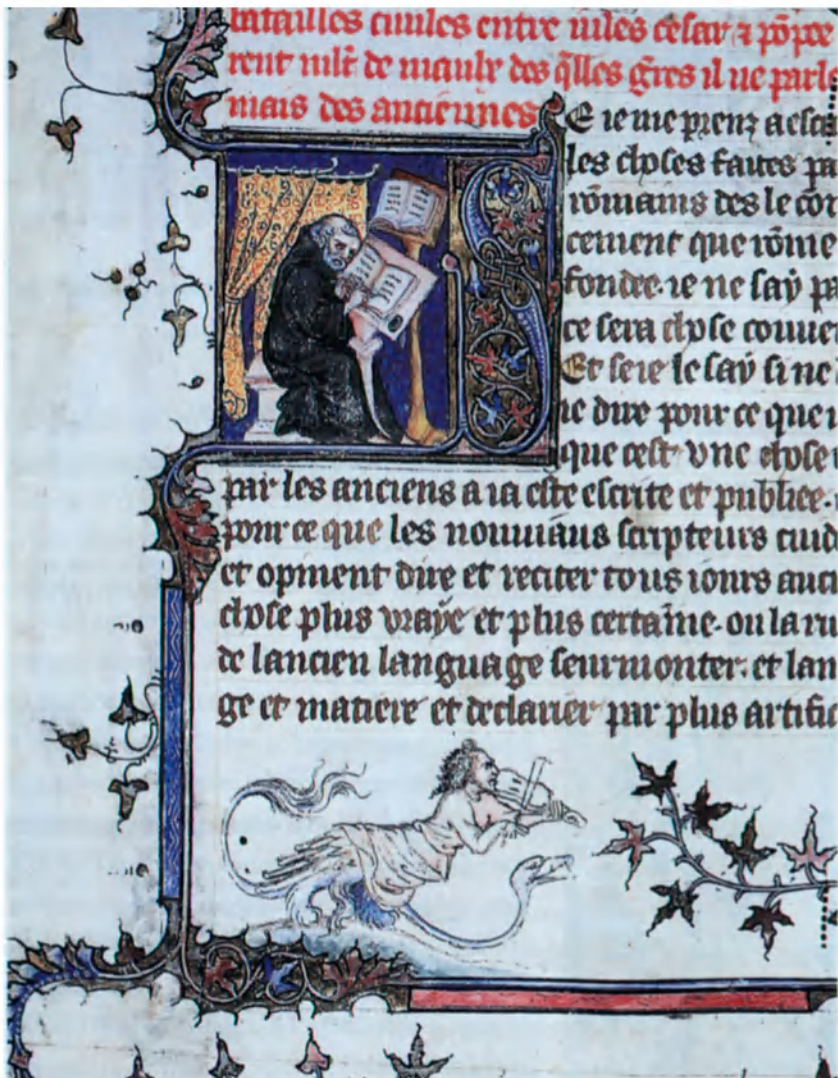 batailles ciuiles entre iules cesar ⁊ põpee
rent mlt̃ de maulx des q̃lles gr̃es il ne parl
mais des anciennes
E ie me prenz a esc
les choses faites pa
rõmains des le cõ
cement que rõme
fondee. ie ne say p
ce sera chose conue
Et se ie le say si ne
ie dire pour ce que
que cest vne chose
par les anciens a ia este escrite et publiee.
pour ce que les nouuiaus scripteurs cuid
et opinent dire et reciter tous iours auc
chose plus vraye et plus certaine. ou la ru
de lancien language seurmonter. et lan
ge et matiere et declairier par plus artific